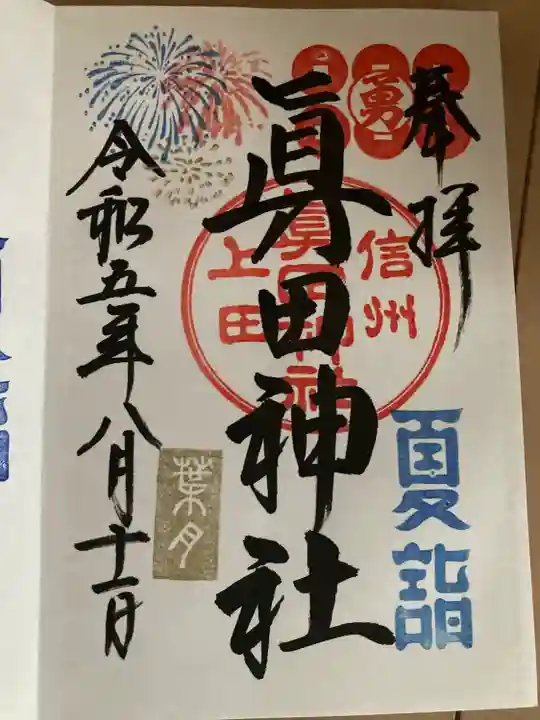 奉拝
勇
夏詣
信州
眞田神社
上田
眞田神社
葉月
令和五年八月十一日